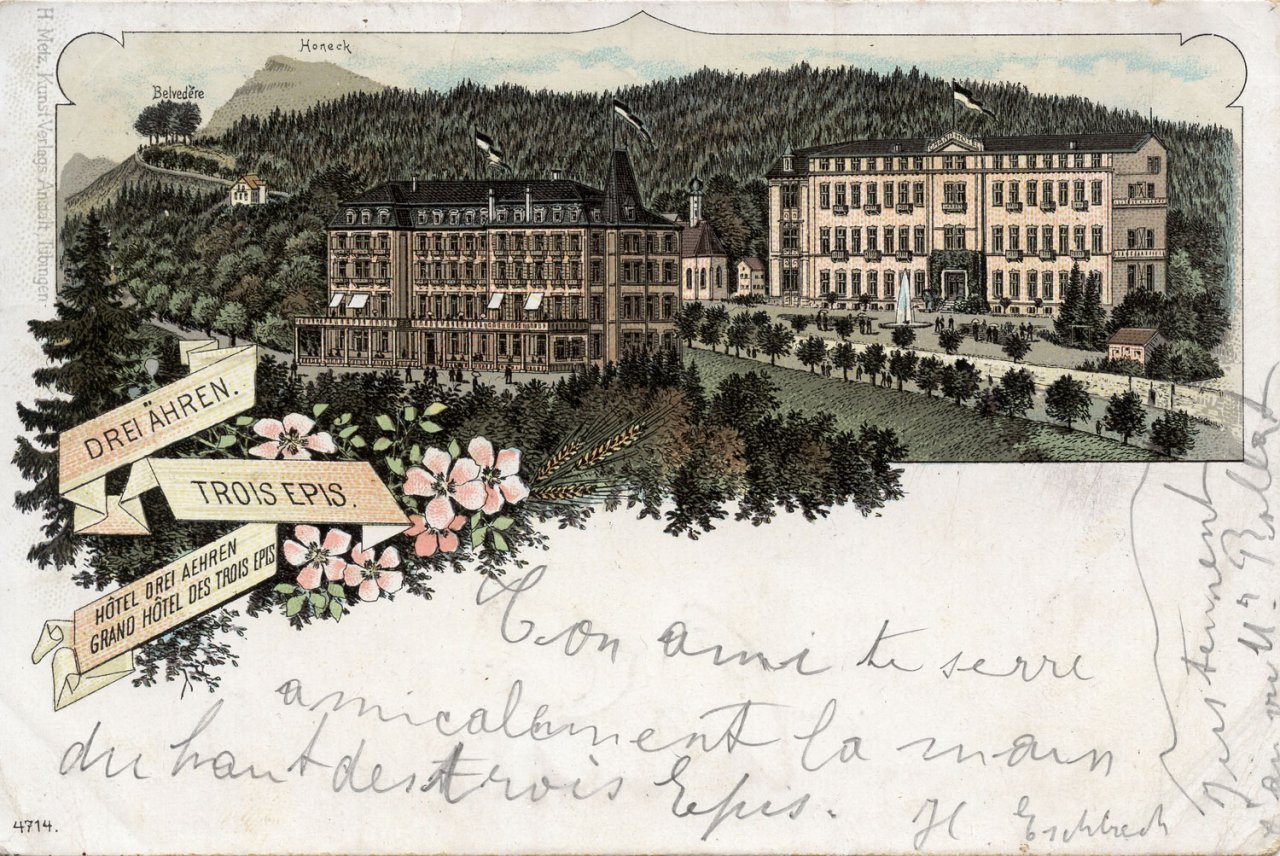 H. Metz, Kunst-Verlags-Anstalt, Tübingen
Honeck
Belvedère
GRAND HOTEL
DREI ÄHREN.
TROIS EPIS.
HÔTEL DREI AEHREN
GRAND HÔTEL DES TROIS EPIS
Ton ami te serre
amicalement la main
du haut des trois Epis.
H Eschbach
4714.